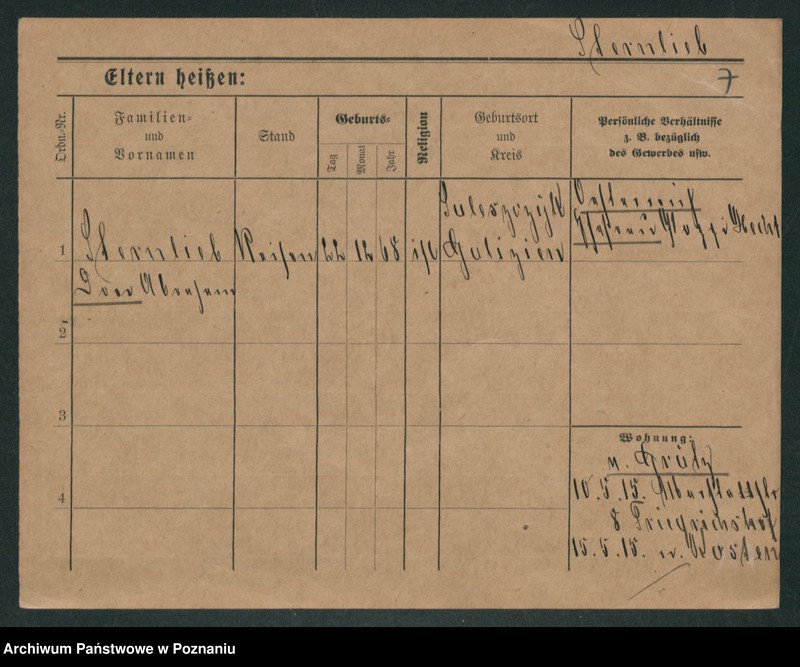 Sternlieb
Eltern heißen:
7
Ordn.-Nr.
Familien-
und
Vornamen
Stand
Geburts-
Tag
Monat
Jahr
Religion
Geburtsort
und
Kreis
Persönliche Verhältnisse
z. B. bezüglich
des Gewerbes usw.
1
Sternlieb
Abraham
22
12
68
isr
Galizien
Oesterreich
Ehefrau
2
3
4
Wohnung:
n. Grätz
10.5.15.
8 Friedrichshof
15.5.15. n. Kosten
Archiwum Państwowe w Poznaniu